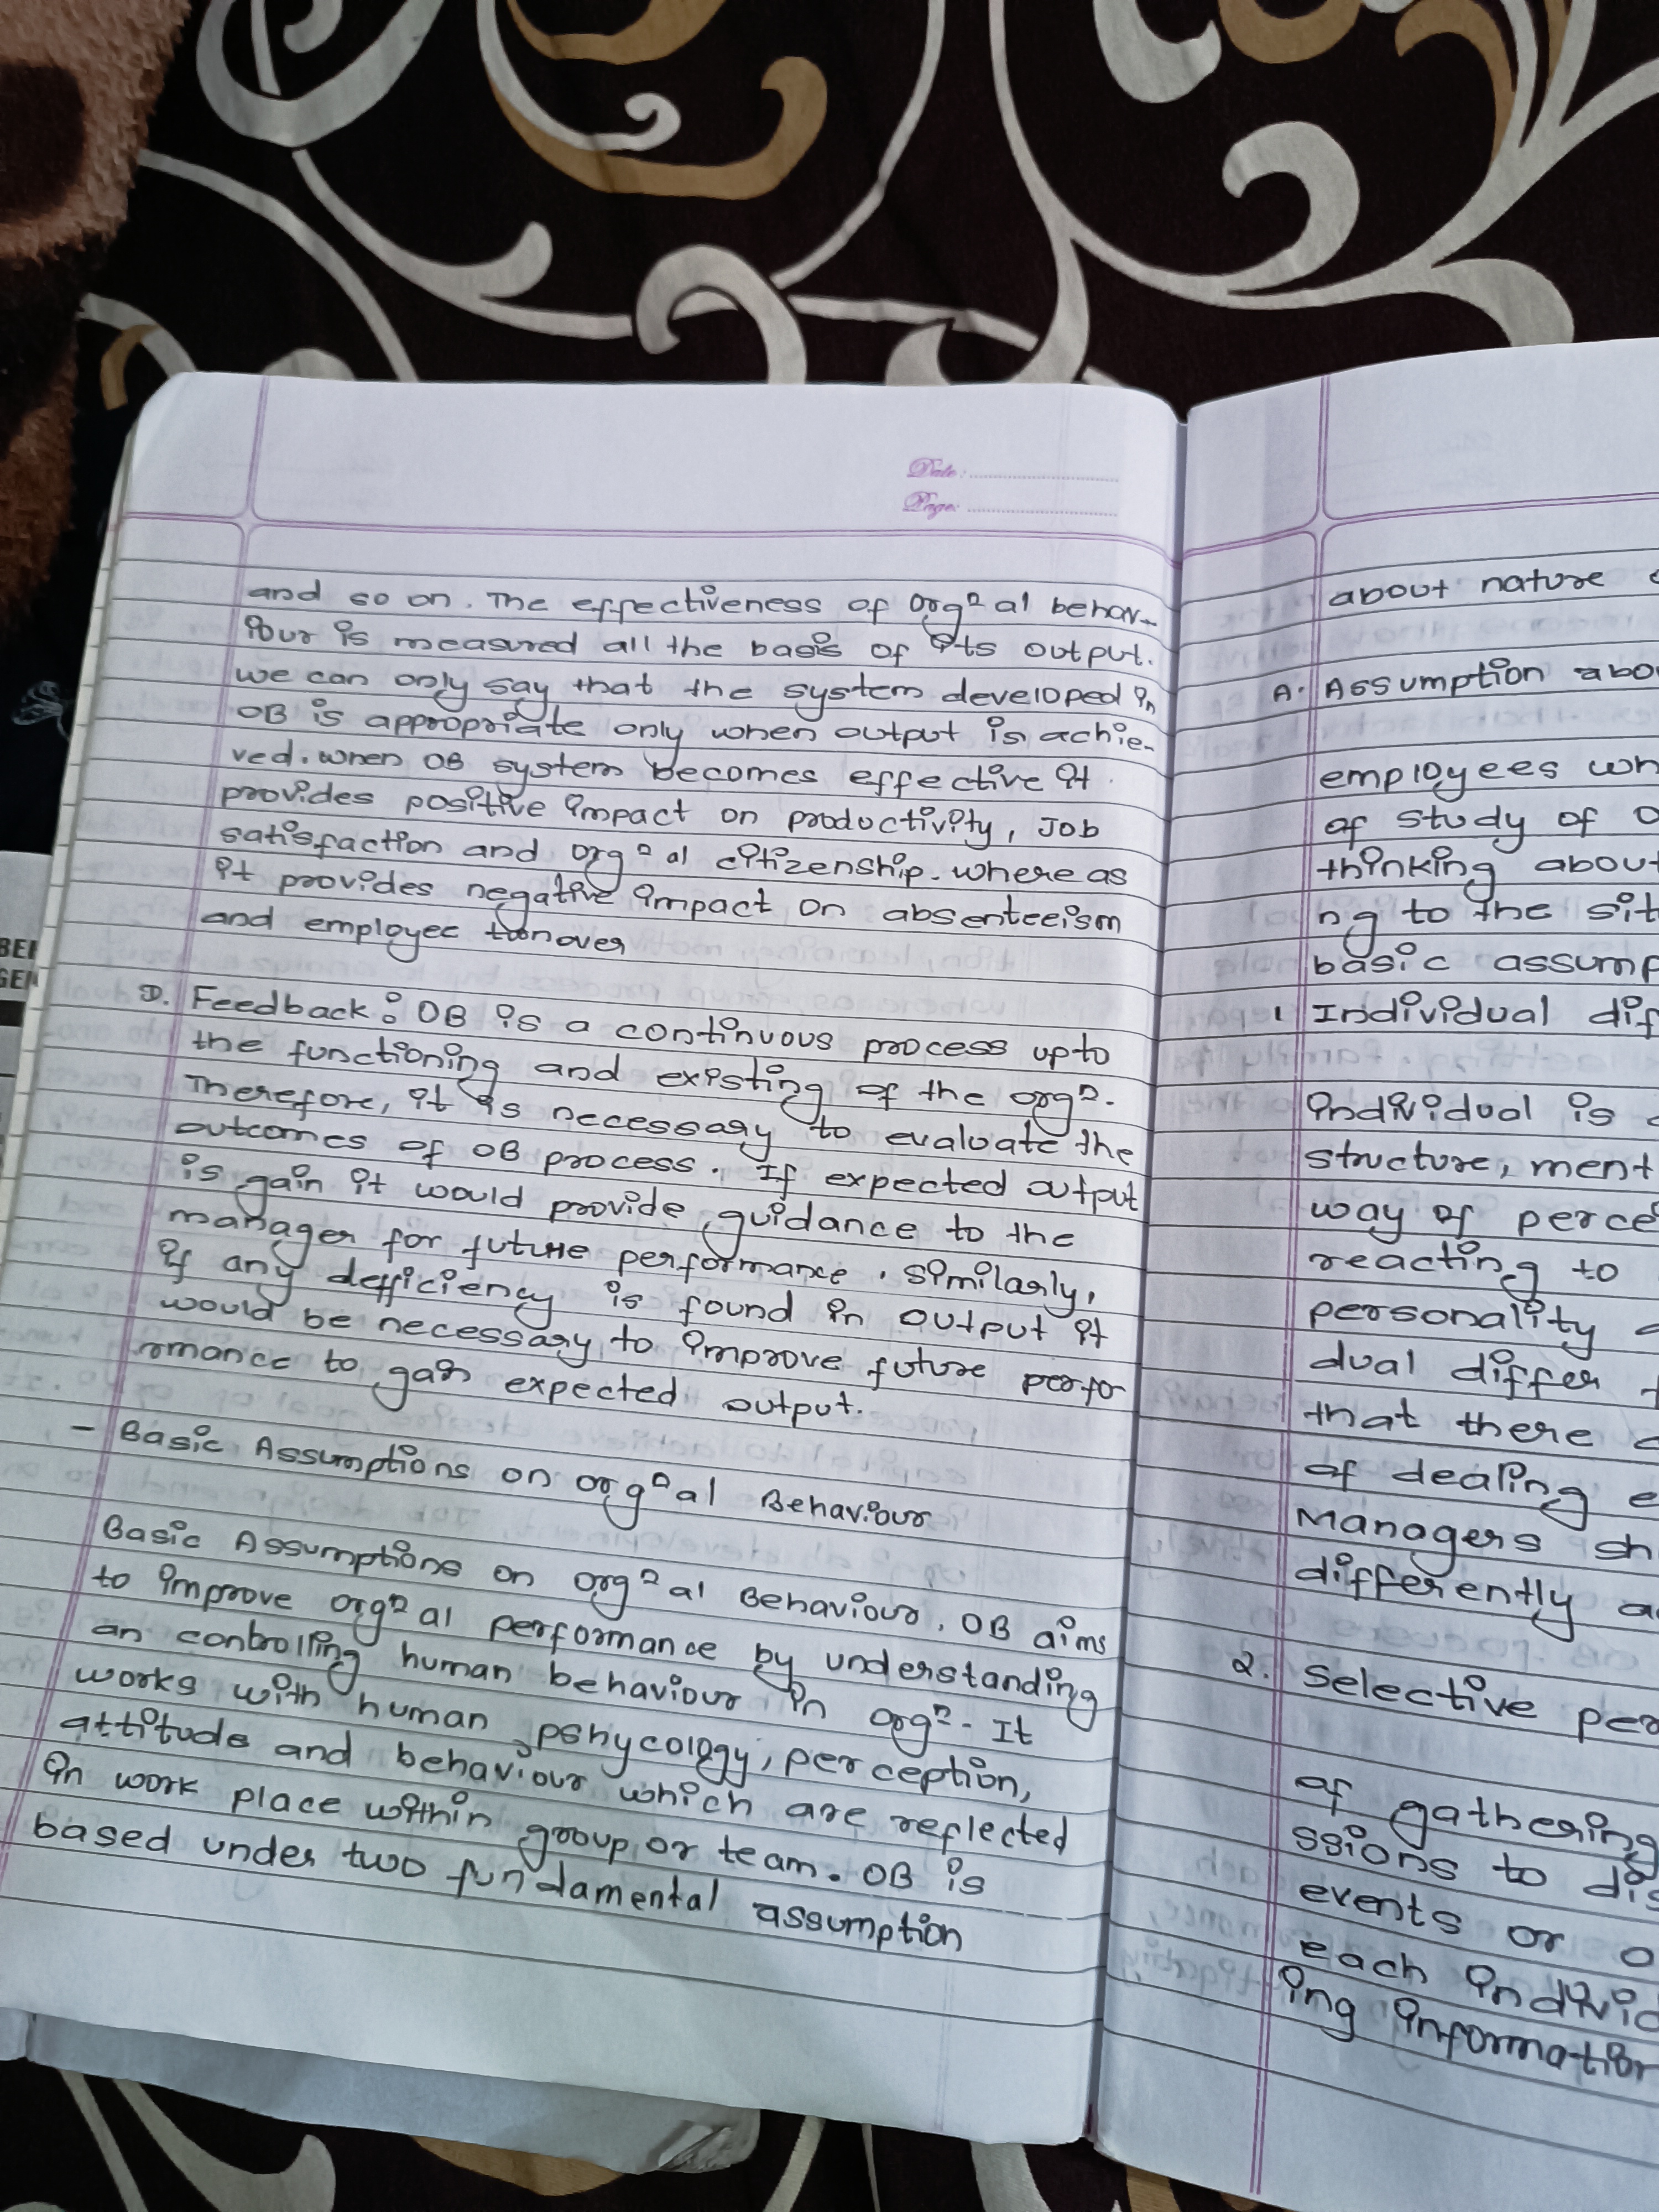 Date:
Page:
and so on. The effectiveness of orgⁿal behav-
iour is measured all the basis of its output.
we can only say that the system developed in
OB is appropriate only when output is achie-
ved. when OB system becomes effective it
provides positive impact on productivity, Job
satisfaction and orgⁿal citizenship. where as
it provides negative impact on absenteeism
and employee turnover
D. Feedback: OB is a continuous process upto
the functioning and existing of the orgⁿ.
Therefore, it is necessary to evaluate the
outcomes of OB process. If expected output
is gain it would provide guidance to the
manager for future performance. similarly,
if any defficiency is found in output it
would be necessary to improve future perfor
rmance to gain expected output.
- Basic Assumptions on orgⁿal Behaviour
Basic Assumptions on orgⁿal Behaviour. OB aims
to improve orgⁿal performance by understanding
an controlling human behaviour in orgⁿ. It
works with human pshycology, perception,
attitude and behaviour which are reflected
in work place within group or team. OB is
based under two fundamental assumption
about nature
A. Assumption abo
employees wh
of study of
thinking about
ng to the sit
basic assump
1 Individual dif
individual is
structure, ment
way of perce
reacting to
personality
dual differ
that there
of dealing e
Managers sh
differently a
2. Selective per
of gathering
ssions to dis
events or o
each individ
ing information
BEH
GEN